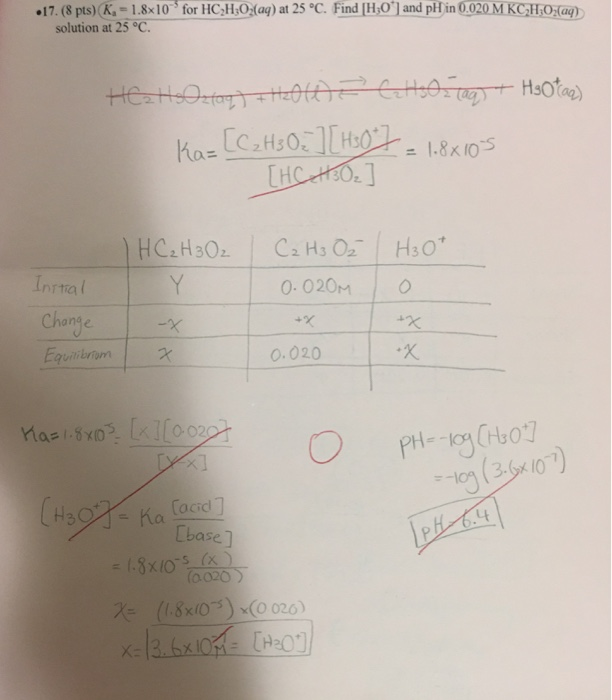 •17. (8 pts) Kₐ = 1.8×10⁻⁵ for HC₂H₃O₂(aq) at 25 °C. Find [H₃O⁺] and pH in 0.020 M KC₂H₃O₂(aq)
solution at 25 °C.
HC₂H₃O₂(aq) + H₂O(l) ⇌ C₂H₃O₂⁻(aq) + H₃O⁺(aq)
Ka = [C₂H₃O₂⁻][H₃O⁺] / [HC₂H₃O₂] = 1.8×10⁻⁵
HC₂H₃O₂ C₂H₃O₂⁻ H₃O⁺
Initial Y 0.020M 0
Change -x +x +x
Equilibrium x 0.020 +x
Ka = 1.8×10⁻⁵ = [x][0.020] / [Y-x]
pH = -log[H₃O⁺]
= -log(3.6×10⁻⁷)
pH = 6.4
[H₃O⁺] = Ka [acid] / [base]
= 1.8×10⁻⁵ (x) / (0.020)
x = (1.8×10⁻⁵) × (0.020)
x = 3.6×10⁻⁷M = [H₃O⁺]